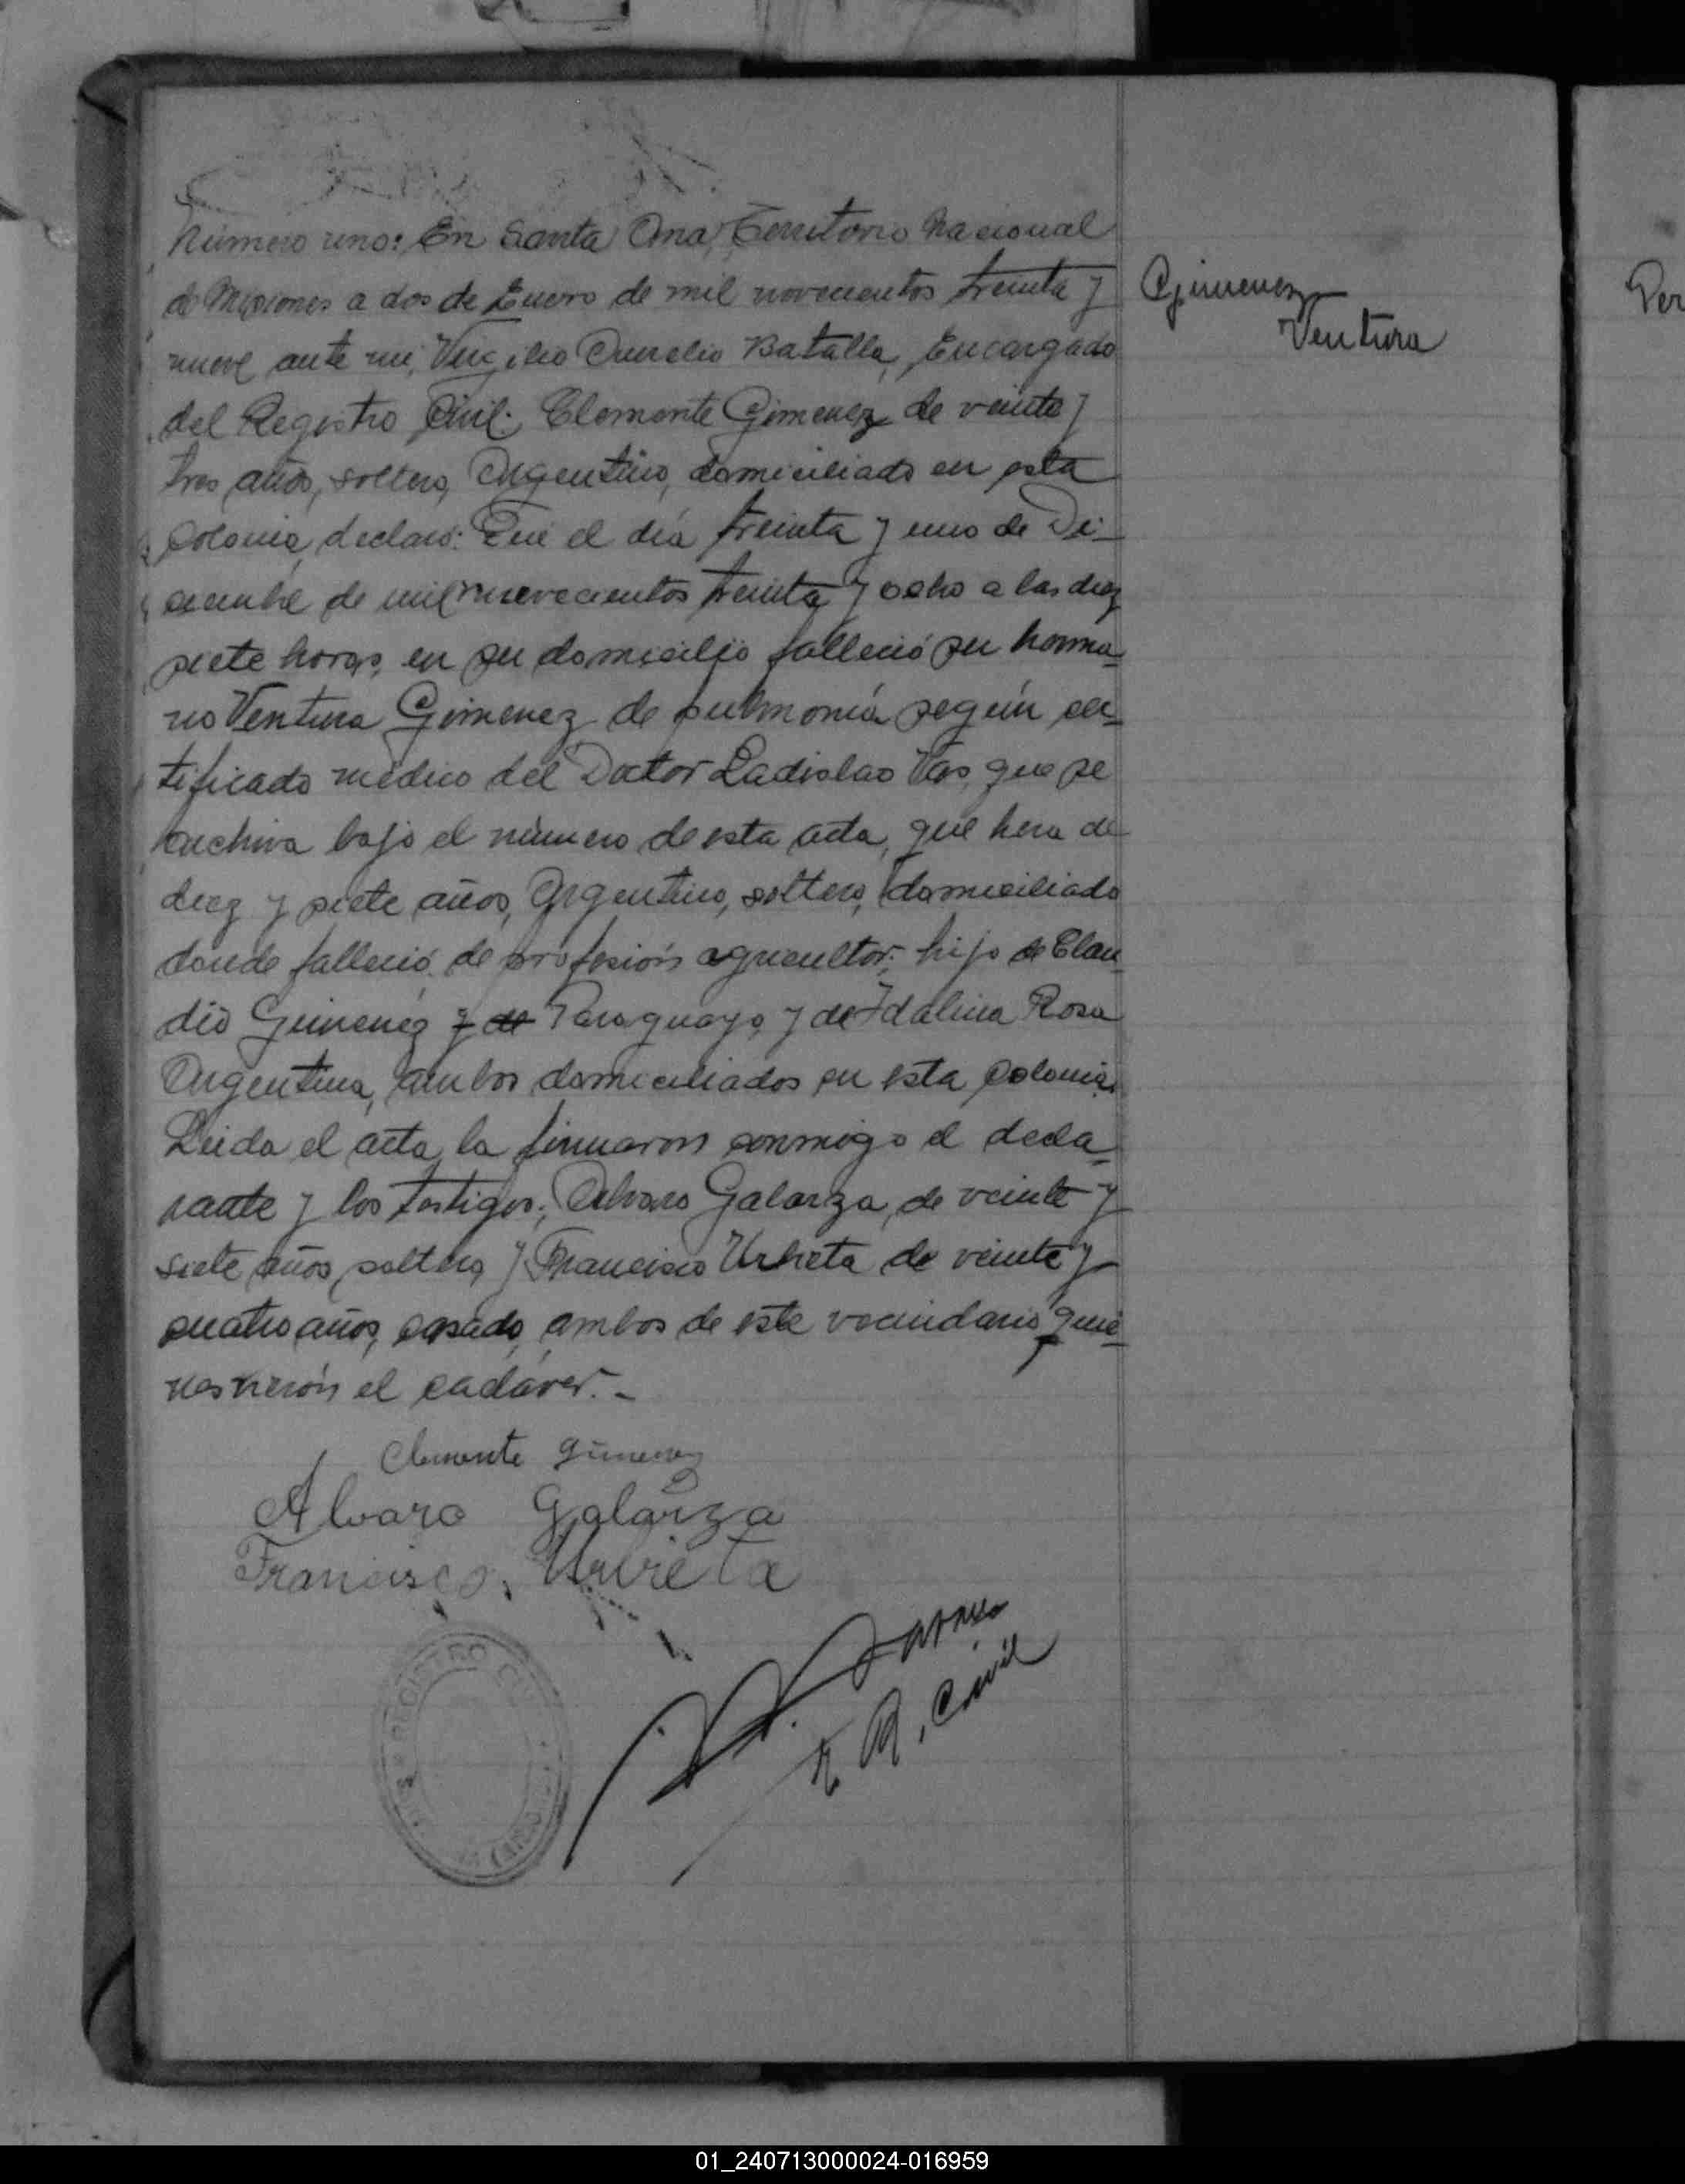 Número uno: En Santa Ana, Territorio Nacional
de Misiones a dos de Enero de mil novecientos treinta y
nueve ante mi, Virgilio Aurelio Batalla, Encargado
del Registro Civil: Clemente Gimenez de veinte y
tres años, soltero, Argentino, domiciliado en esta
Colonia, declaro: Que el día treinta y uno de Di-
ciembre de mil nuevecientos treinta y ocho a las diez
siete horas, en su domicilio falleció su herma-
no Ventura Gimenez de pulmonía según cer-
tificado médico del Doctor Ladislao Vas, que se
archiva bajo el número de esta acta, que hera de
diez y siete años, Argentino, soltero, domiciliado
donde falleció, de profesión agricultor; hijo de Clau-
dio Gimenez y de Paraguayo, y de Idalina Rosa
Argentina, ambos domiciliados en esta colonia.
Leida el acta, la firmaron conmigo el decla-
rante y los testigos; Alvaro Galarza, de veinte y
siete años soltero, y Francisco Urbieta de veinte y
cuatro años, casado, ambos de este vecindario quie-
nes vierón el cadáver.-
Gimenez
Ventura
Clemente Gimenez
Alvaro Galarza
Francisco. Urvieta
E R. Civil
REGISTRO
Per
01_240713000024-016959